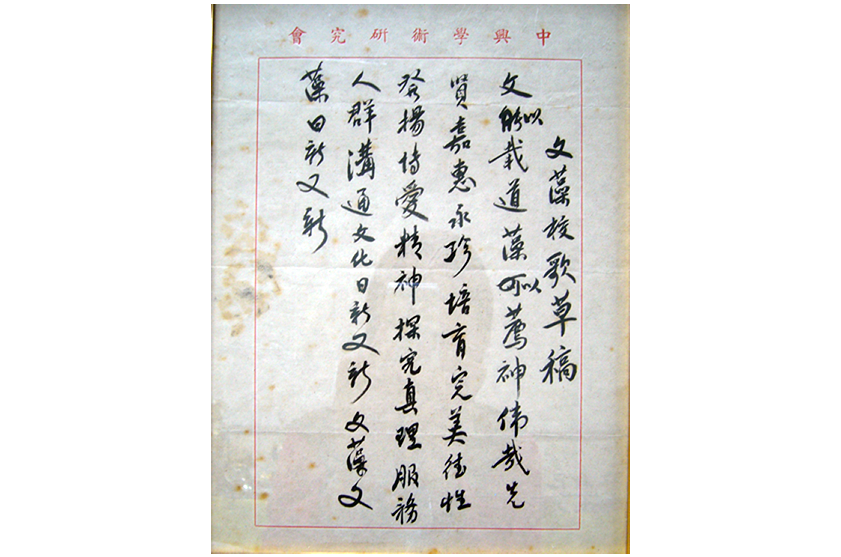 中興學術研究會
文藻校歌草稿
文能以載道藻可以薦神偉哉先
賢嘉惠永珍培育完美德性
發揚博愛精神探究真理服務
人群溝通文化日新又新文藻文
藻日新又新